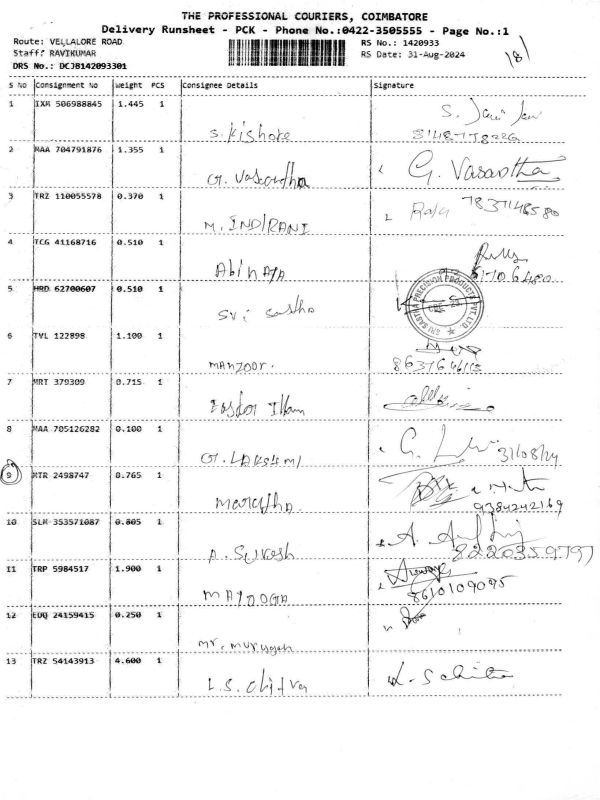 THE PROFESSIONAL COURIERS, COIMBATORE
Delivery Runsheet - PCK - Phone No.:0422-3505555 - Page No.:1
Route: VELLALORE ROAD RS No.: 1420933
Staff: RAVIKUMAR RS Date: 31-Aug-2024
DRS No.: DCJB142093301
181
S No Consignment No weight PCS Consignee Details Signature
1 IXM 506988845 1.445 1
S. Kishore
2 MAA 704791876 1.355 1
G. Vasantha G. Vasantha
3 TRZ 110055578 0.370 1
M. INDIRANI
4 TCG 41168716 0.510 1
AbiNAYA
5 HRD 62700607 0.510 1
Sri Sastha
SRI SASTHA PRECISION PRODUCTS PVT. LTD.
6 TVL 122898 1.100 1
MANZOOR.
7 MRT 379309 0.715 1
8 MAA 705126282 0.100 1
G. LAKSHMI 31/08/24
9 MTR 2498747 0.765 1
9384242169
10 SLM 353571087 0.805 1
A. Suresh 8220359797
11 TRP 5984517 1.900 1
8610109095
12 EDQ 24159415 0.250 1
Mr. Murugan
13 TRZ 54143913 4.600 1
L.S. Chitra